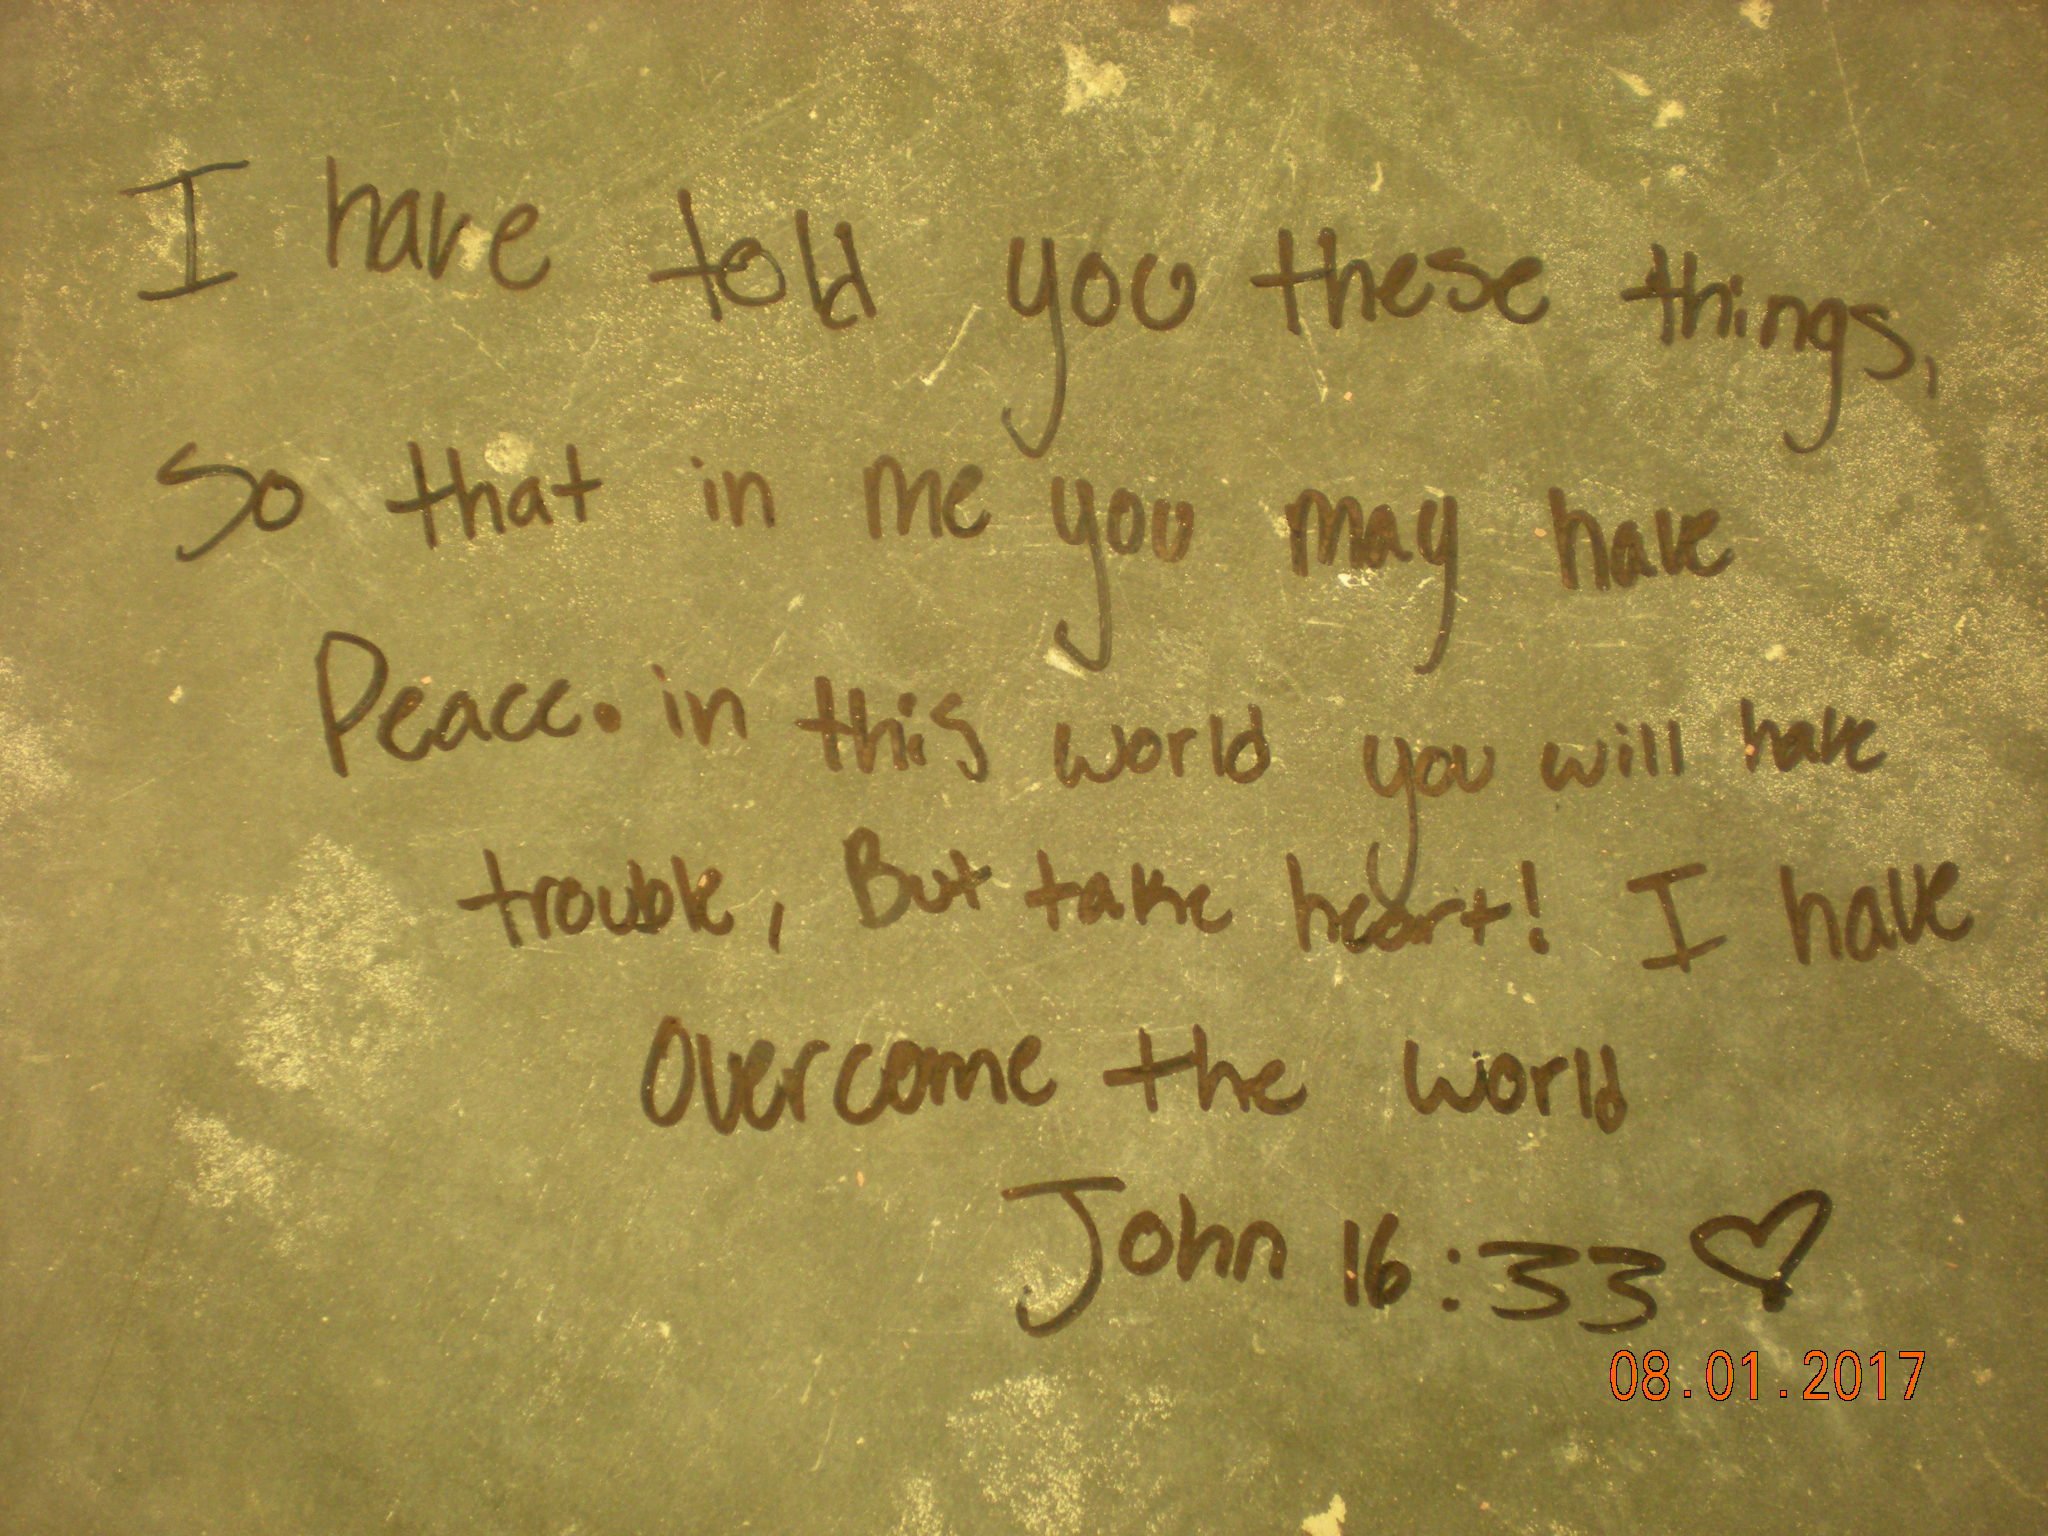 I have told you these things,
So that in me you may have
Peace. in this world you will have
trouble, But take heart! I have
Overcome the world
John 16:33
08.01.2017